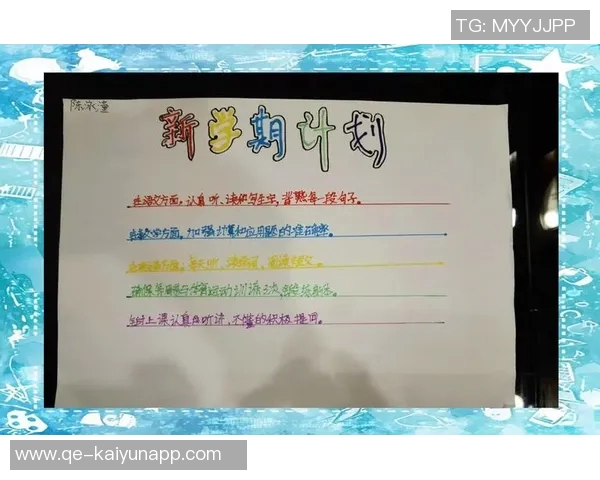 TG: MYYJJPP
陈泳潼
新学期计划
在语文方面，认真听、读和写生字，背熟每一段句子。
在数学方面，加强计算和应用题的准确率。
在英语方面，每天听
确保每周与体育运动训练三次
上课认真听讲，不懂的积极提问。
www.qe-kaiyunapp.com